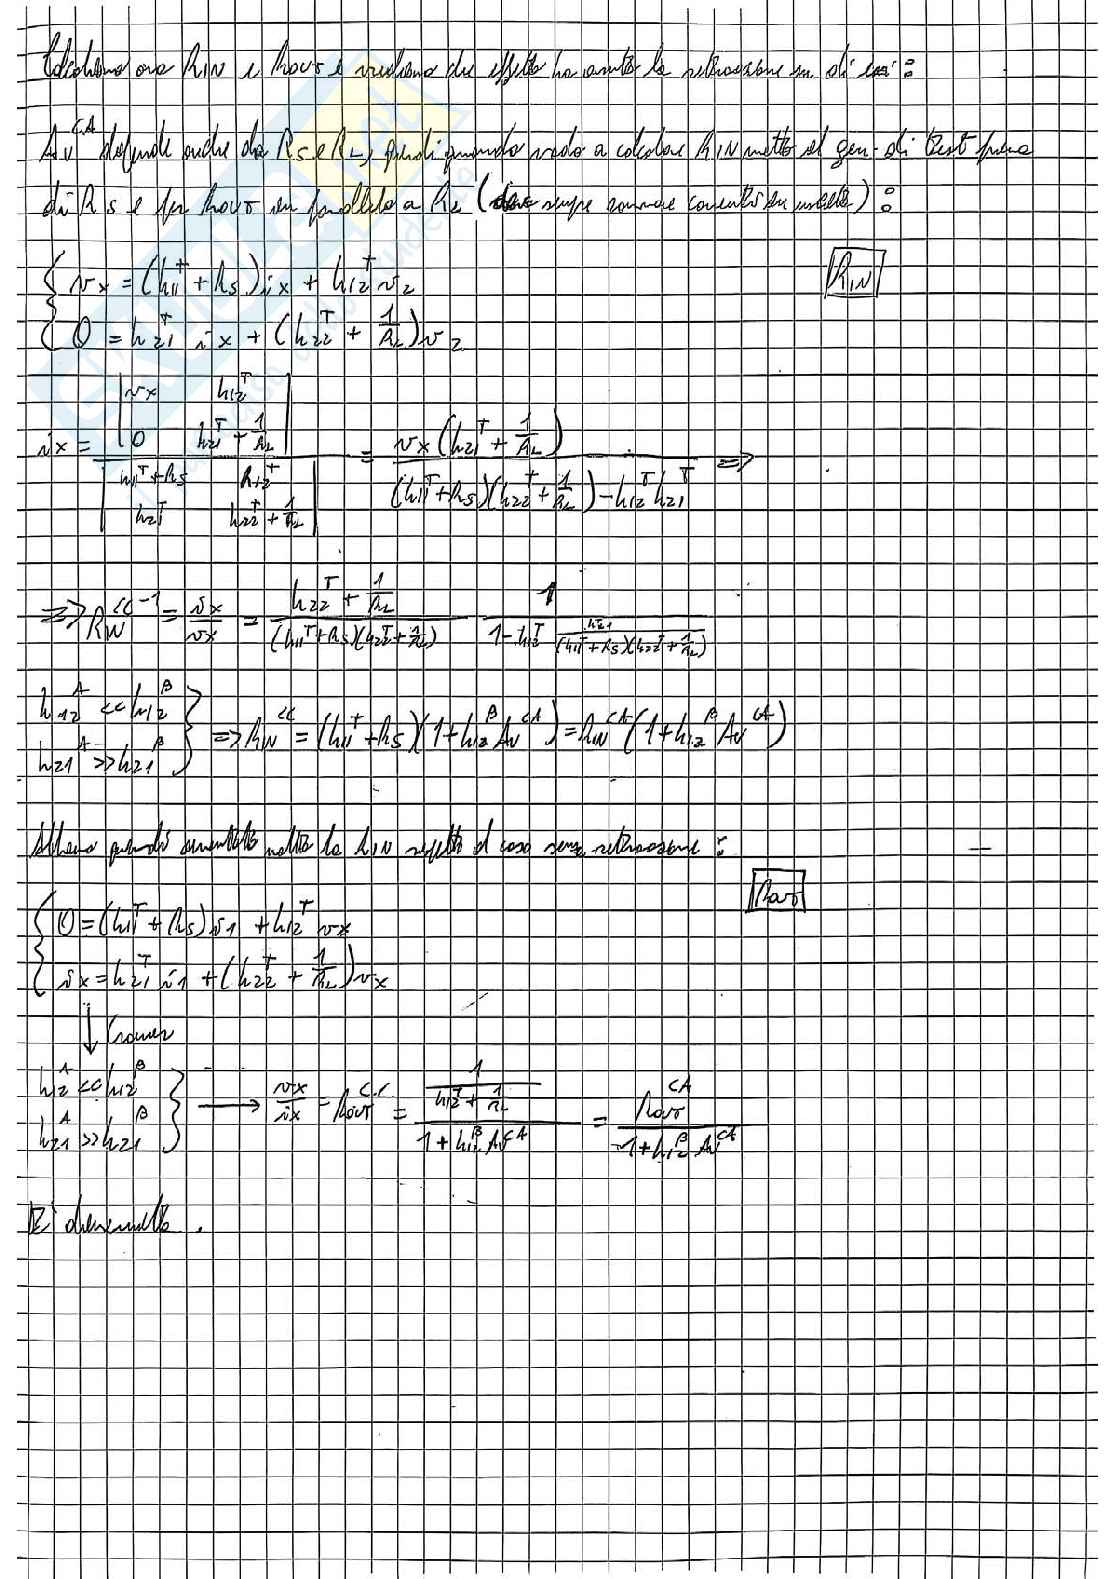 Calcoliamo ora RIN e ROUT e vediamo che effetto ha avuto la retroazione su di essi:
Av^CA dipende anche da RS e RL, quindi quando vado a calcolare RIN metto il gen. di test prima
di RS e per ROUT in parallelo a RL ( sempre sommare ):
RIN
{ vx = (h11^T + RS) ix + h12^T v2
{ 0 = h21^T ix + (h22^T + 1/RL) v2
ix = |vx h12^T; 0 h21^T + 1/RL| / |h11^T + RS h12^T; h21^T h22^T + 1/RL| = vx (h21^T + 1/RL) / ((h11^T + RS)(h22^T + 1/RL) - h12^T h21^T) =>
=> RIN^CC^-1 = ix/vx = (h22^T + 1/RL) / ((h11^T + RS)(h22^T + 1/RL)) 1 / (1 - h12^T h21 / ((h11^T + RS)(h22^T + 1/RL)))
h12^A << h12^B
h21^A >> h21^B } => RIN^CC = (h11^T + RS)(1 + h12^B Av^CA) = RIN^CA (1 + h12^B Av^CA)
Abbiamo quindi aumentato molto la RIN rispetto al caso senza retroazione:
ROUT
{ 0 = (h11^T + RS) i1 + h12^T vx
{ ix = h21^T i1 + (h22^T + 1/RL) vx
↓ Cramer
h12^A << h12^B
h21^A >> h21^B } → vx/ix = ROUT^CC = (1 / (h12^T + 1/RL)) / (1 + h12^B Av^CA) = ROUT^CA / (1 + h12^B Av^CA)
E' diminuita.